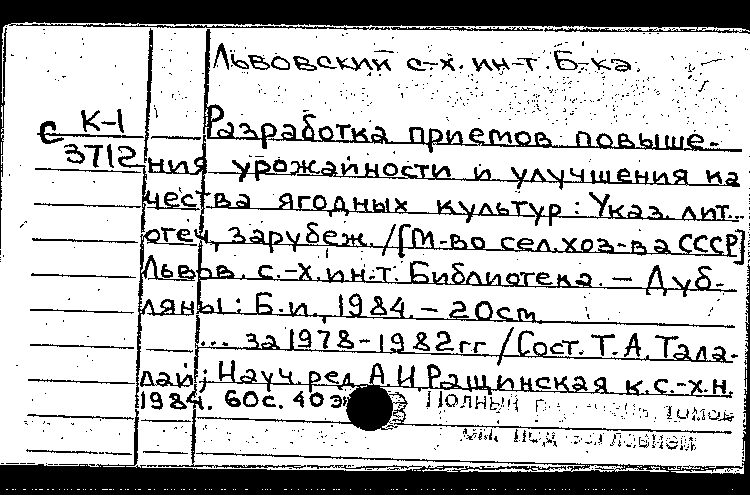 Львовский с-х. ин-т. Б-ка.
с К-1
3712
Разработка приемов повыше-
ния урожайности и улучшения ка
чества ягодных культур : Указ. лит...
отеч, зарубеж. /[М-во сел.хоз-ва СССР]
Львов. с.-х.ин-т. Библиотека. – Дуб-
ляны : Б.и., 1984. – 20см.
... за 1978-1982гг /Сост. Т.А. Тала-
лай ; Науч.ред А.И.Ращинская к.с.-х.н.
1984. 60с. 40э
Полный томов
под заглавием